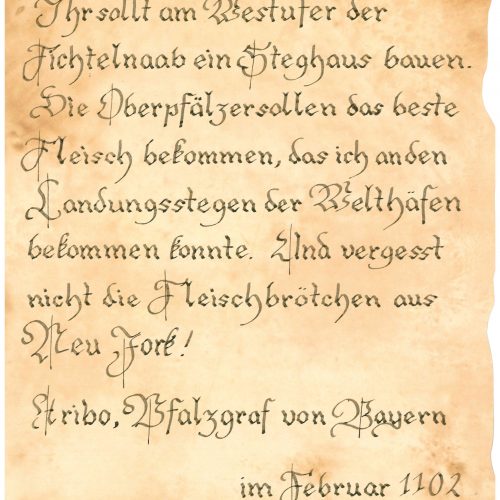 Ihr sollt am Westufer der
Fichtelnaab ein Steghaus bauen.
Die Oberpfälzer sollen das beste
Fleisch bekommen, das ich an den
Landungsstegen der Welthäfen
bekommen konnte. Und vergesst
nicht die Fleischbrötchen aus
Neu Jork!
Aribo, Pfalzgraf von Bayern
im Februar 1102